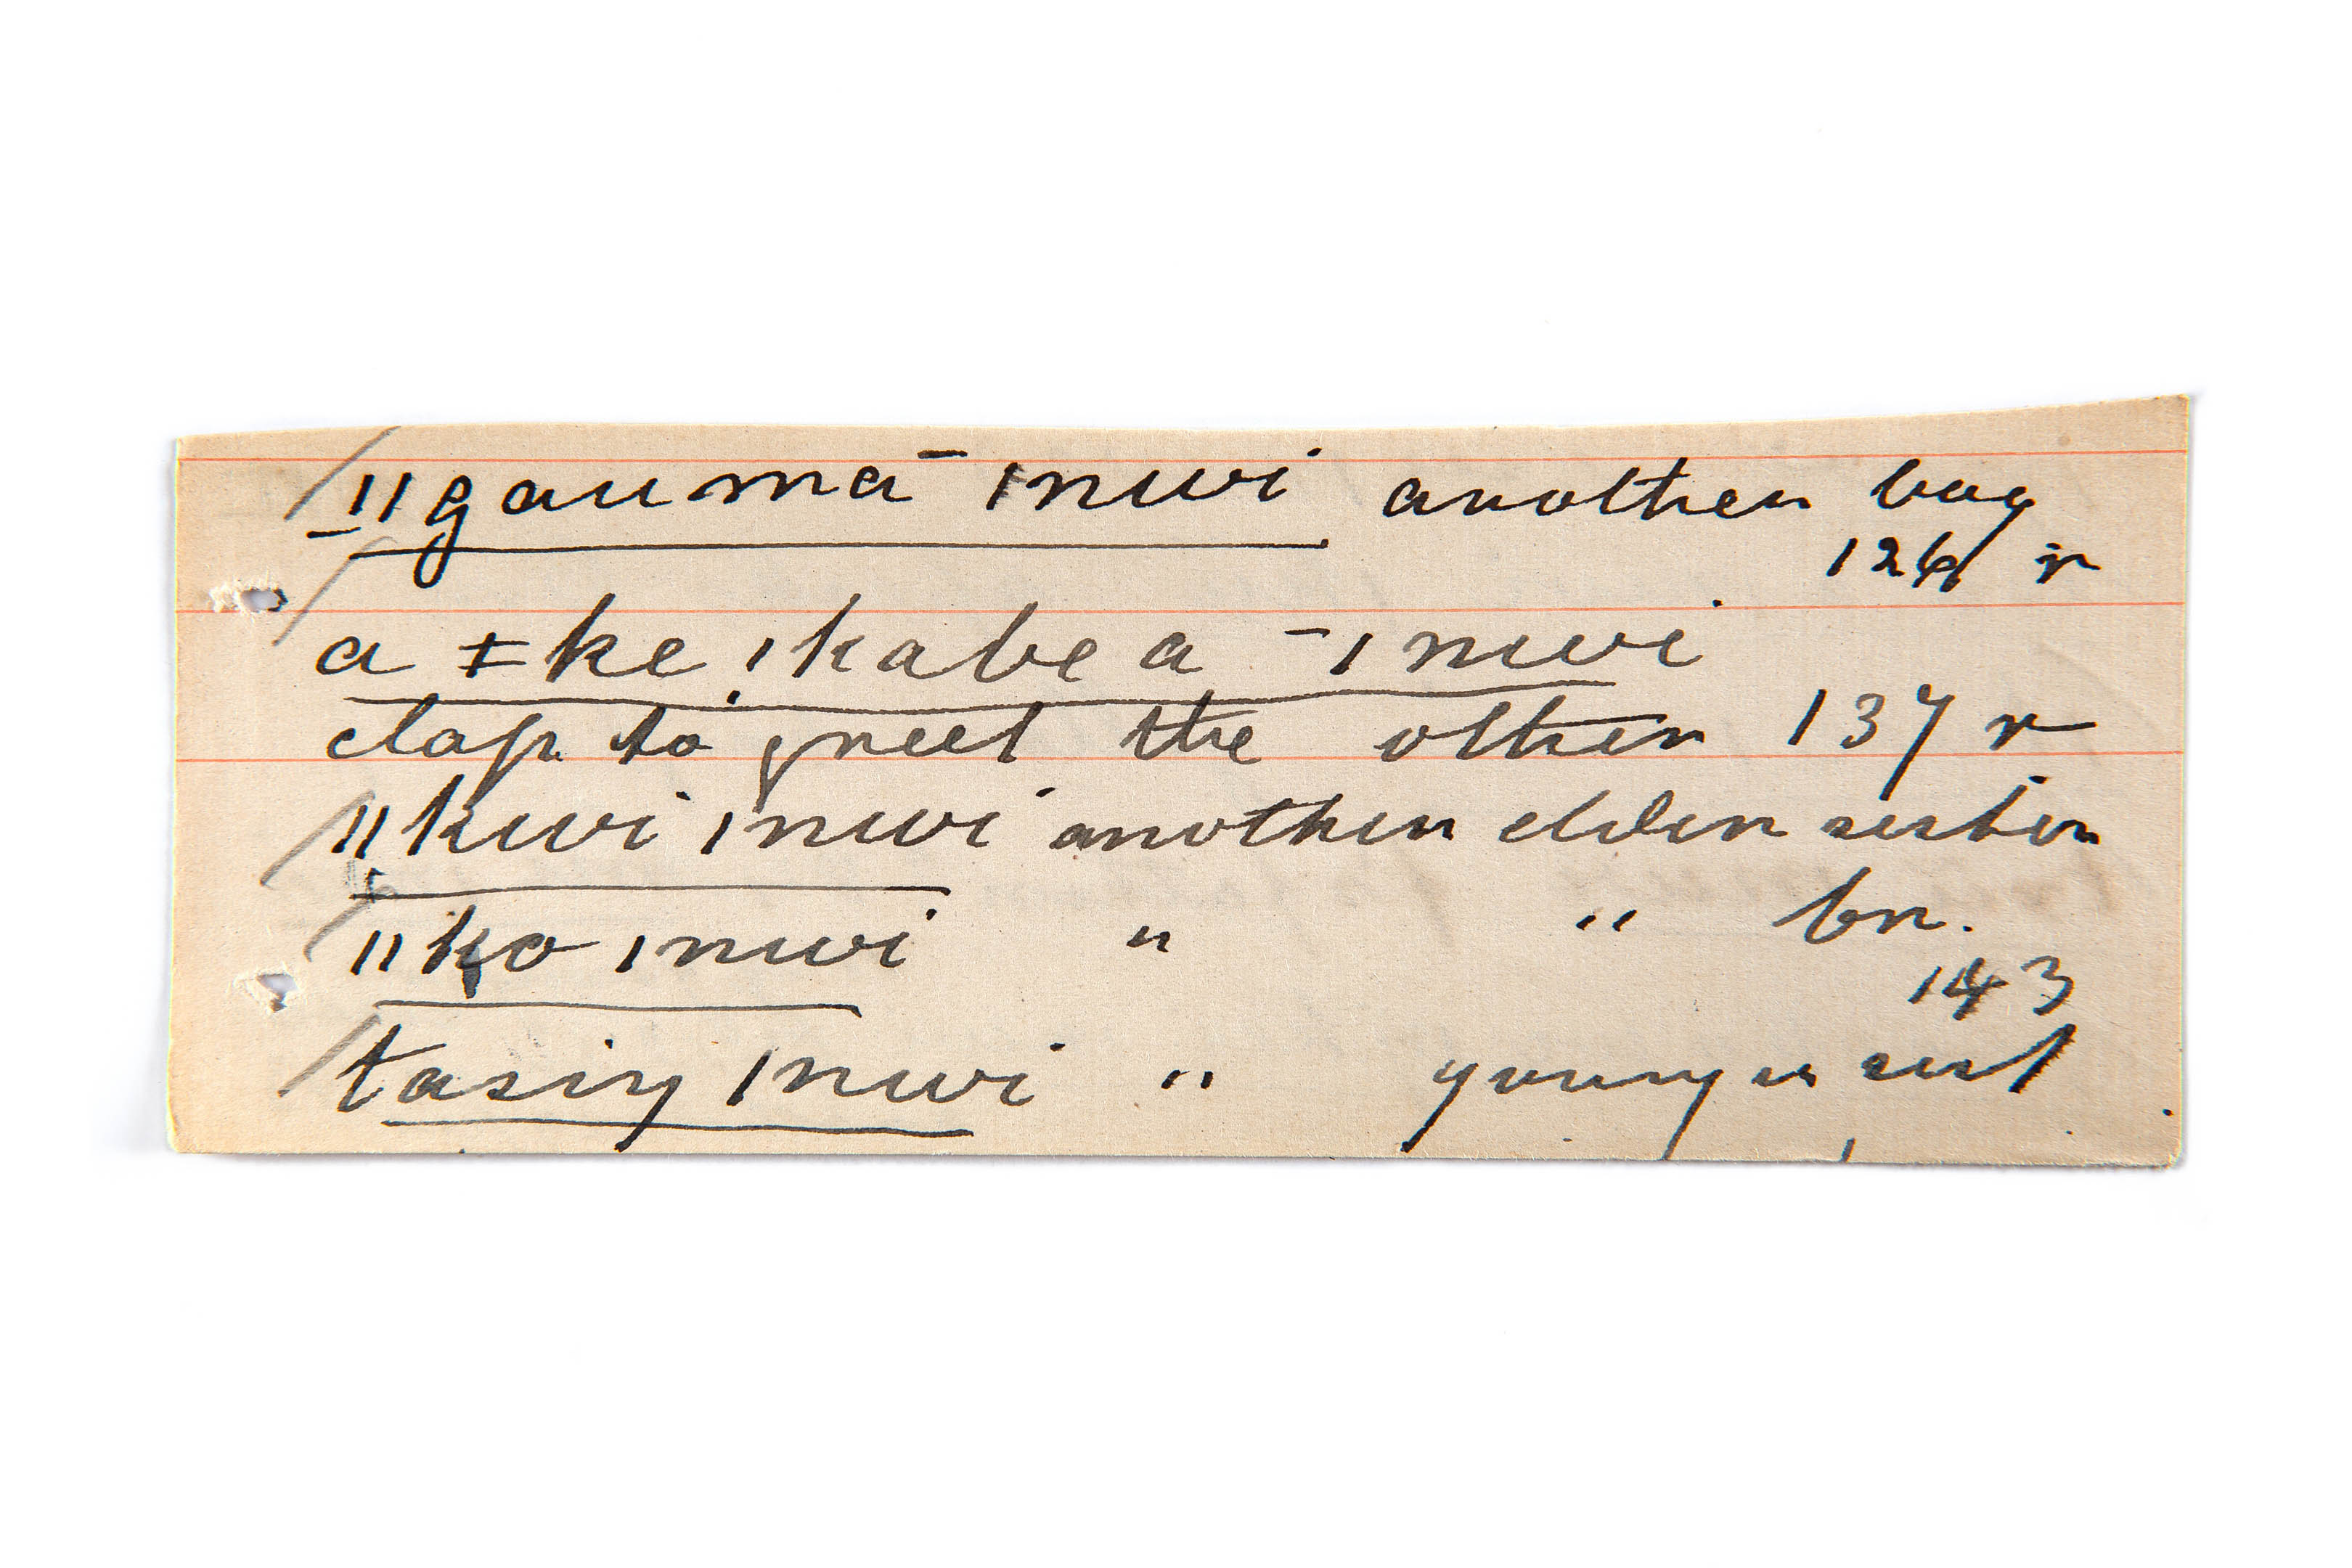 ǁgaumā ǀnwi another bag
126 r
a ǂke ǀkabe a ‾ǀnwi
clap to greet the other 137 r
ǁkwi ǀnwi another elder sister
ǁko ǀnwi " " br.
143
tasiŋ ǀnwi " younger sist